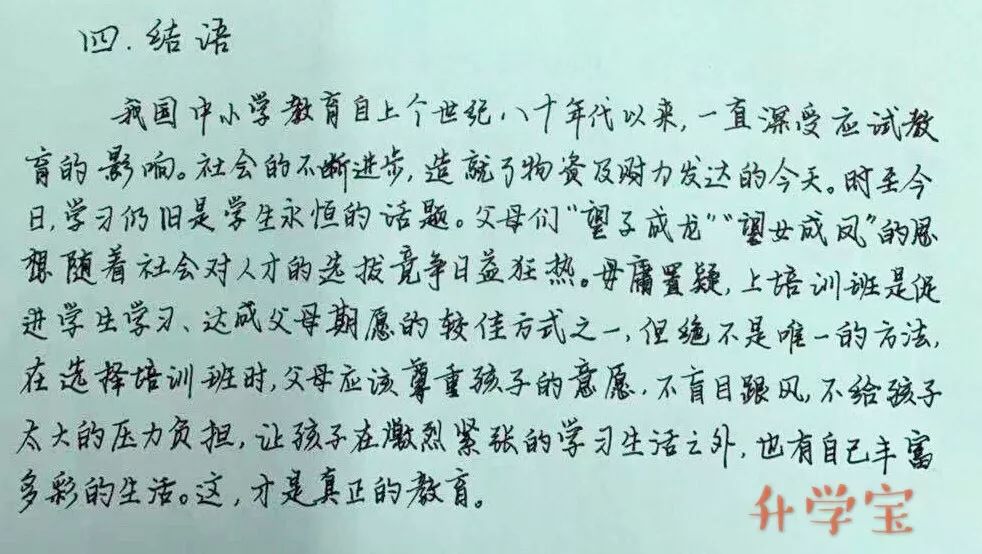 四.结语
我国中小学教育自上个世纪八十年代以来,一直深受应试教
育的影响。社会的不断进步,造就了物资及财力发达的今天。时至今
日,学习仍旧是学生永恒的话题。父母们“望子成龙”“望女成凤”的思
想随着社会对人才的选拔竞争日益狂热。毋庸置疑,上培训班是促
进学生学习、达成父母期愿的较佳方式之一,但绝不是唯一的方法,
在选择培训班时,父母应该尊重孩子的意愿,不盲目跟风,不给孩子
太大的压力负担,让孩子在激烈紧张的学习生活之外,也有自己丰富
多彩的生活。这,才是真正的教育。
升学宝